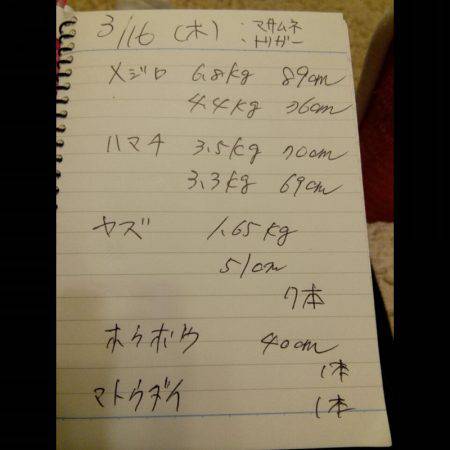 3/16 (木) :マサムネ
:トリガー
メジロ 6.8kg 89cm
4.4kg 76cm
ハマチ 3.5kg 70cm
3.3kg 69cm
ヤズ 1.65kg
51cm
7本
ホウボウ 40cm
1本
マトウダイ 1本